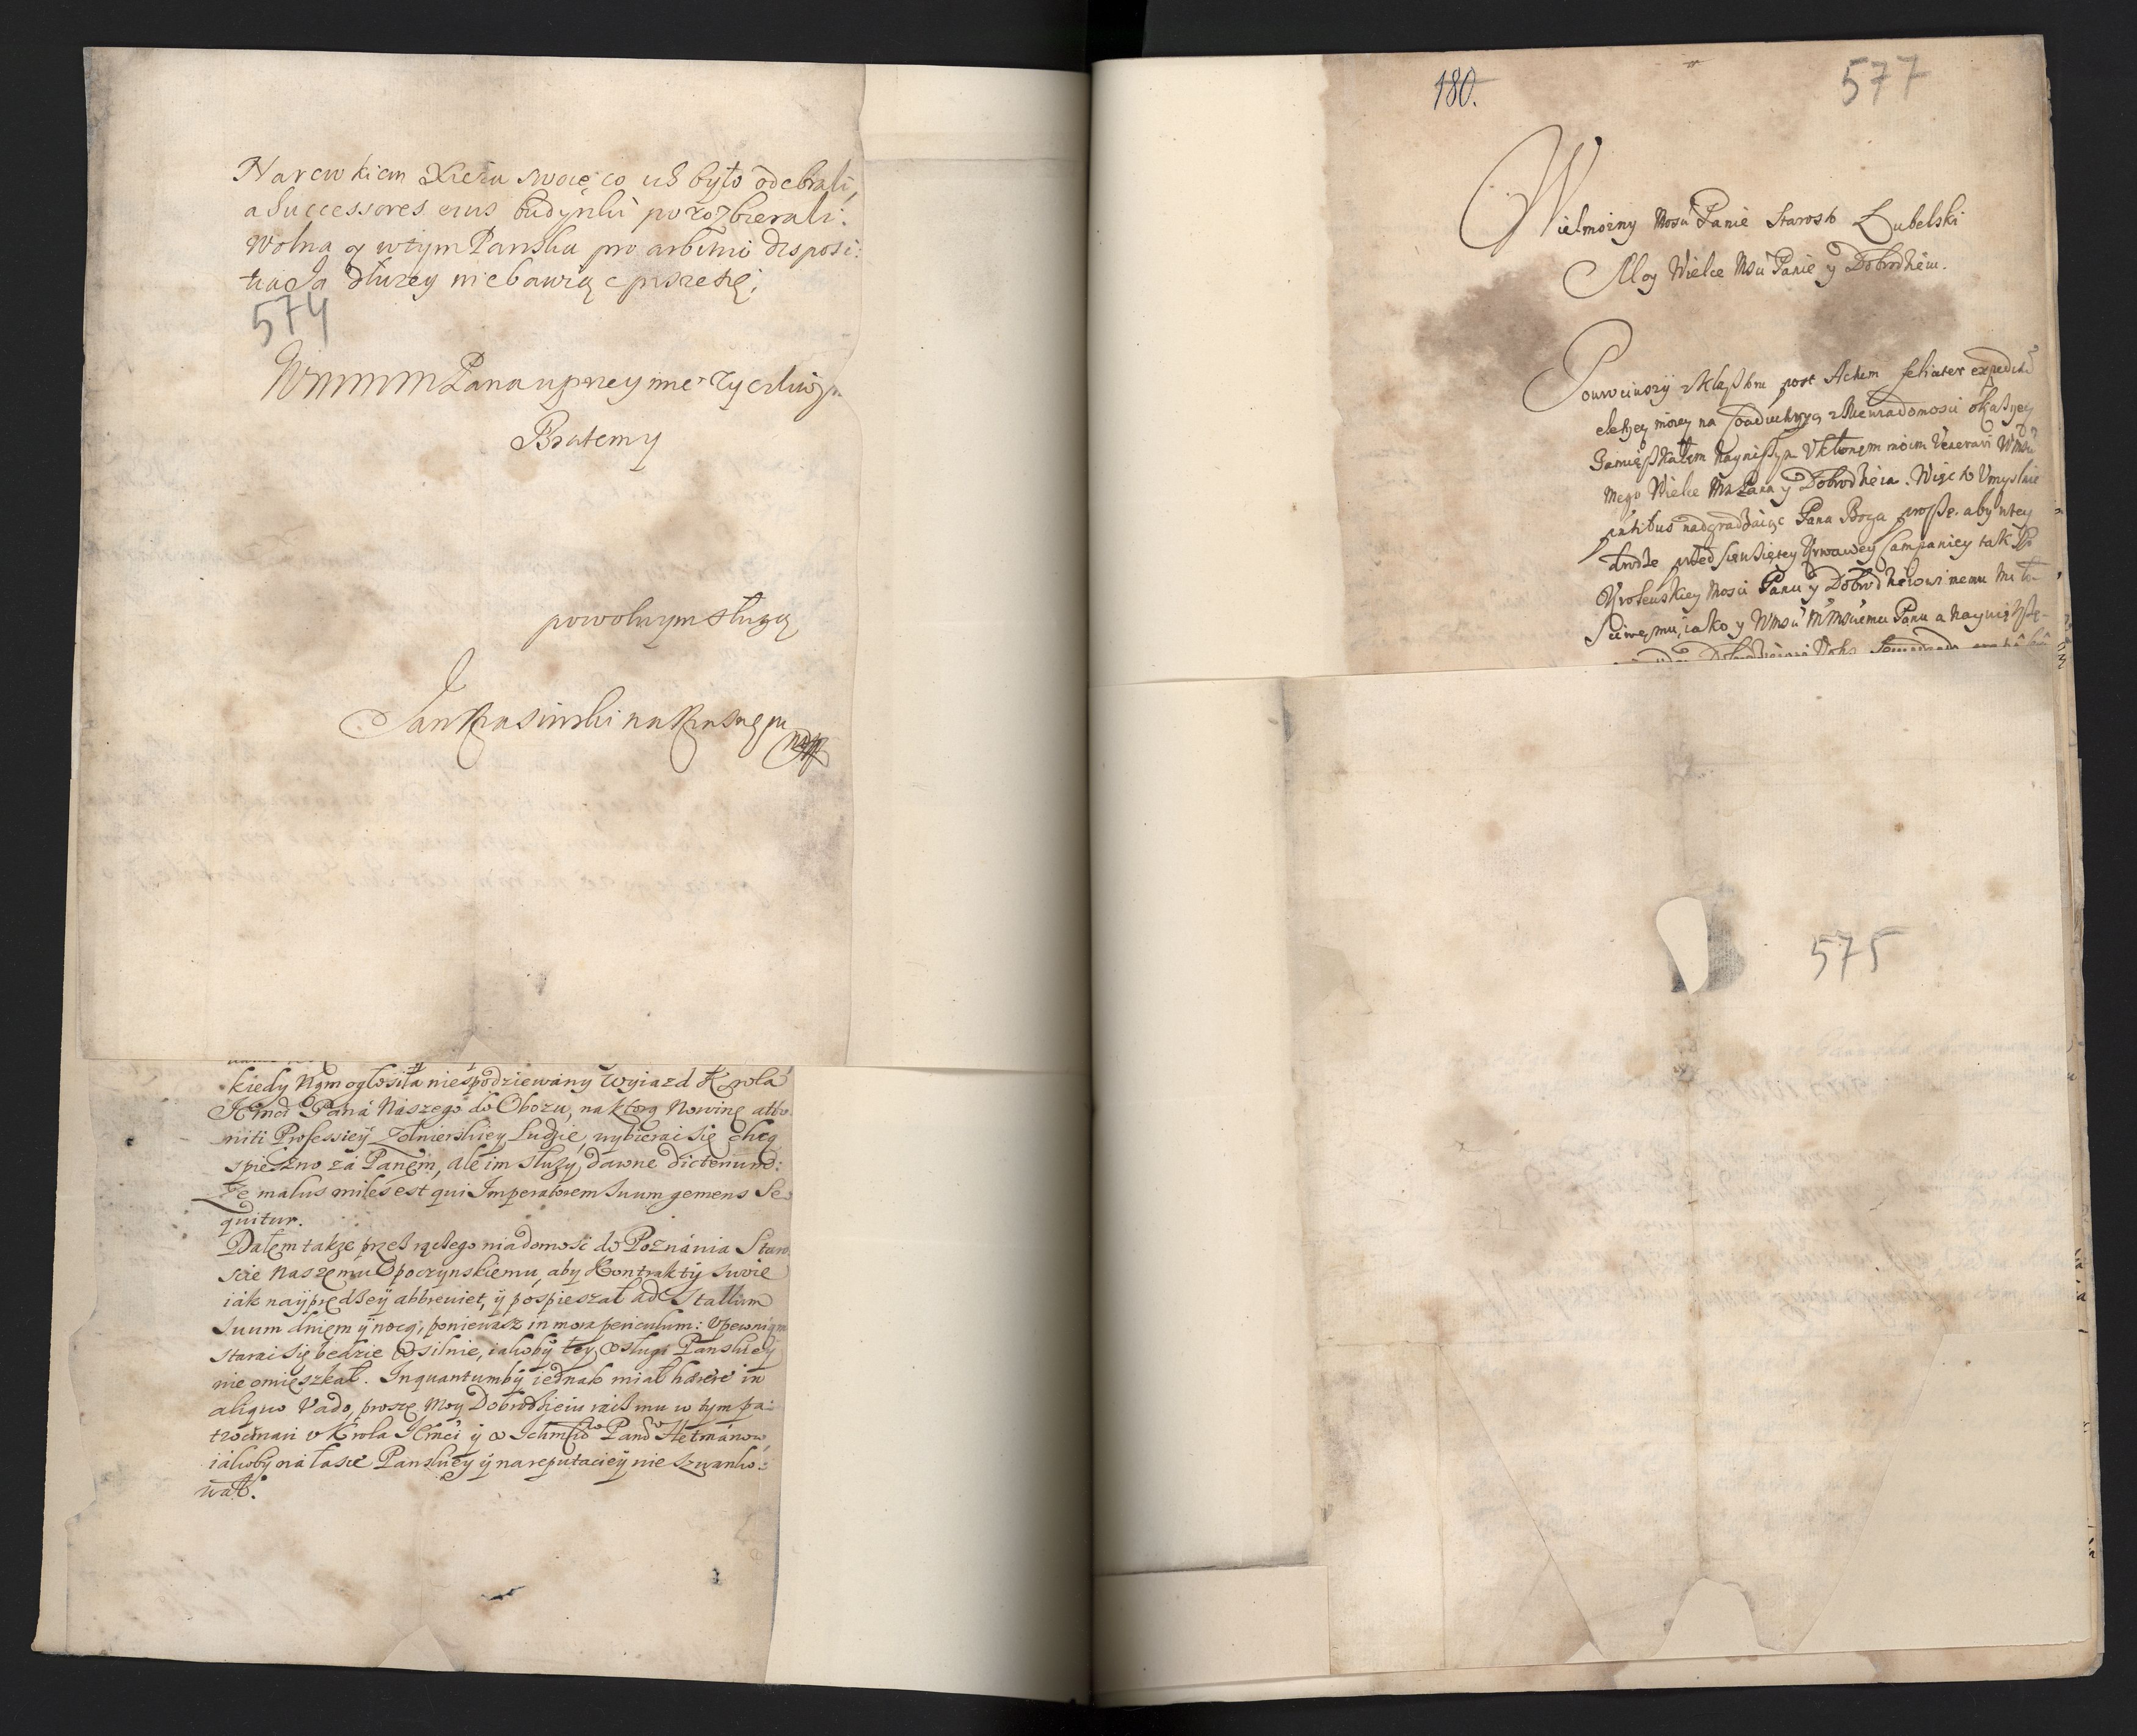 Narewkiem Xieżu swoię co uż było odebrali,
a Successores eius budynki porozbierali.
Wolna y wtym Panska pro arbitrio disposi:
tia Ja dłużey niebawiąc piszesię,
574
WMMMM Pana uprzeymie życzliwy
Bratem y
powolnym sługą
Jan Krasinski na Krasnęm
mpp
kiedy Nąm ogłosiła niespodziewány Wyiazd Krolá
JKmći Páná Nászego do Obozu, na ktorą Nowinę atto-
niti Professiey Zołnierskiey Ludzie, wybierai się chcą
spieszno zá Pánęm, ále im służy dawne dictenum:
Ze malus miles est qui Imperatorem Suum gemens Se-
quitur.
Dałem także przez rącżego wiadomość do Poznánia Staro-
scie Naszemu Opoczynskiemu, aby Kontrakty swoie
iák nayprędzey abbreviet, ÿ pospieszał ad Stallum
Suum dniem ÿ nocą, poniewasz in mora periculum: Upewnią
starai się będzie usilnie, iakoby tey usługi Panskiey
nie omięszkał. Inquantumby iednak miał hærere in
aliquo Vado, proszę Moy Dobrodzieiu racz mu w tym pa-
trocinari u Krola JKmći ÿ u Ichmśćiow Panow Hetmánow,
iákoby ná łasce Panskiey ÿ na reputacieÿ nie szwanko-
wáł.
180.
577
Wielmożny Mośći Panie Starosto Lubelski
Moy Wielce Mśći Panie y Dobrodzieiu.
Powrociwszÿ z Klasztoru post Actum feliciter expeditæ
elekcyey moiey na z Niewiadomosci okazyey
Zamięszkałem nayniszszym Ukłonęm moim Venerari Wmśći
mego Wielce Mśći Pana y Dobrodzieia. Więc to Umyslnie
nadgradzaiąc Pana Boga proszę. aby wtey
drodze przedsięwzięteÿ Krwaweÿ Campaniey tak Jo
Krolewskiey Mośći Panu y Dobrodzieiowi memu Miło-
sciwęmu, iako y Wmśći MMśćiemu Panu a Nayniższe-
575